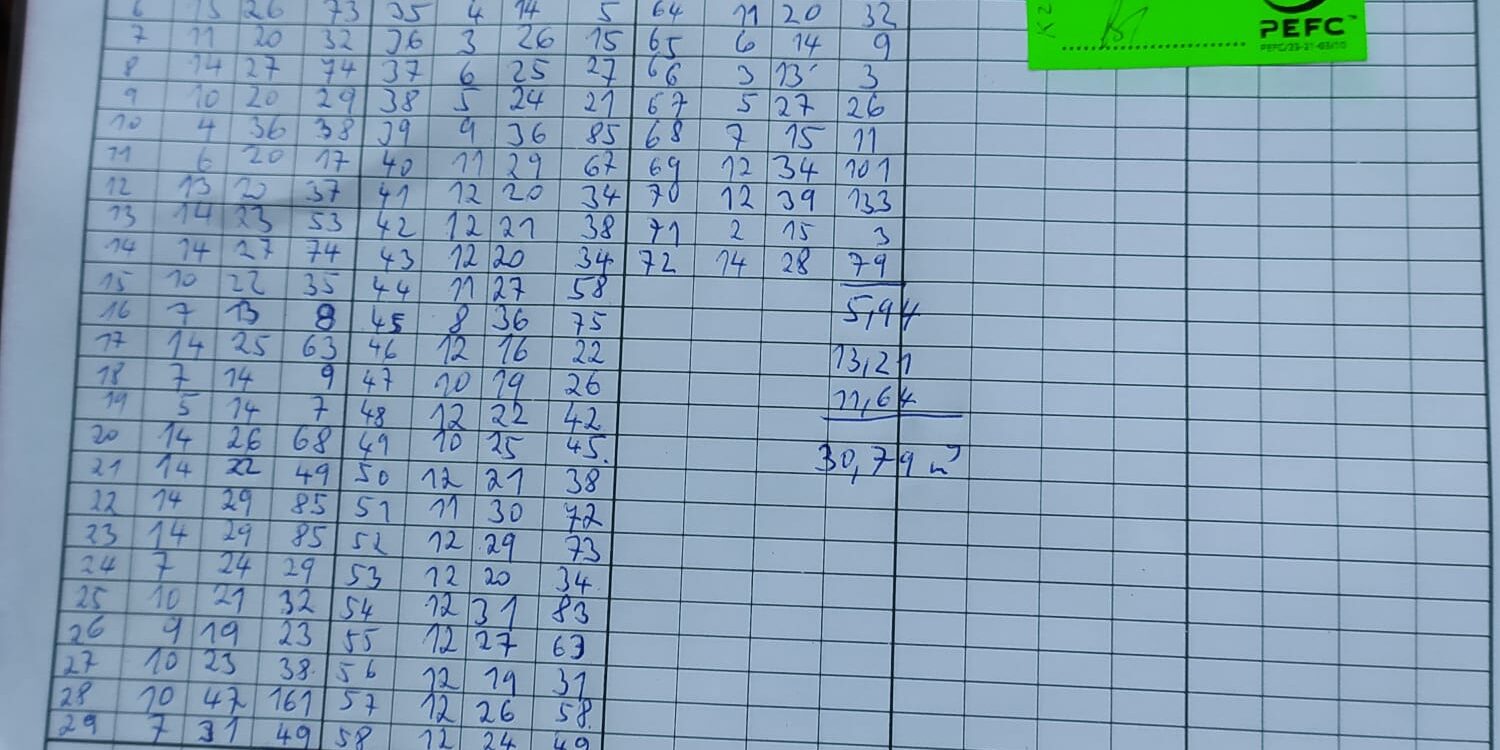 6 13 26 73 35 4 14 5 64 11 20 32
7 11 20 32 36 3 26 15 65 6 14 9
8 14 27 74 37 6 25 27 66 3 13 3
9 10 20 29 38 5 24 21 67 5 27 26
10 4 36 38 39 9 36 85 68 7 15 11
11 6 20 17 40 11 29 67 69 12 34 101
12 13 20 37 41 12 20 34 70 12 39 133
13 14 23 53 42 12 21 38 71 2 15 3
14 14 27 74 43 12 20 34 72 14 28 79
15 10 22 35 44 11 27 58
16 7 13 8 45 8 36 75 5,94
17 14 25 63 46 12 16 22 13,21
18 7 14 9 47 10 19 26 11,64
19 5 14 7 48 12 22 42
20 14 26 68 49 10 25 45. 30,79 m³
21 14 22 49 50 12 21 38
22 14 29 85 51 11 30 72
23 14 29 85 52 12 29 73
24 7 24 29 53 12 20 34
25 10 21 32 54 12 31 83
26 9 19 23 55 12 27 63
27 10 23 38. 56 12 19 31
28 10 47 161 57 12 26 58.
29 7 31 49 58 12 24 49
PEFC™
PEFC/23-21-03/10